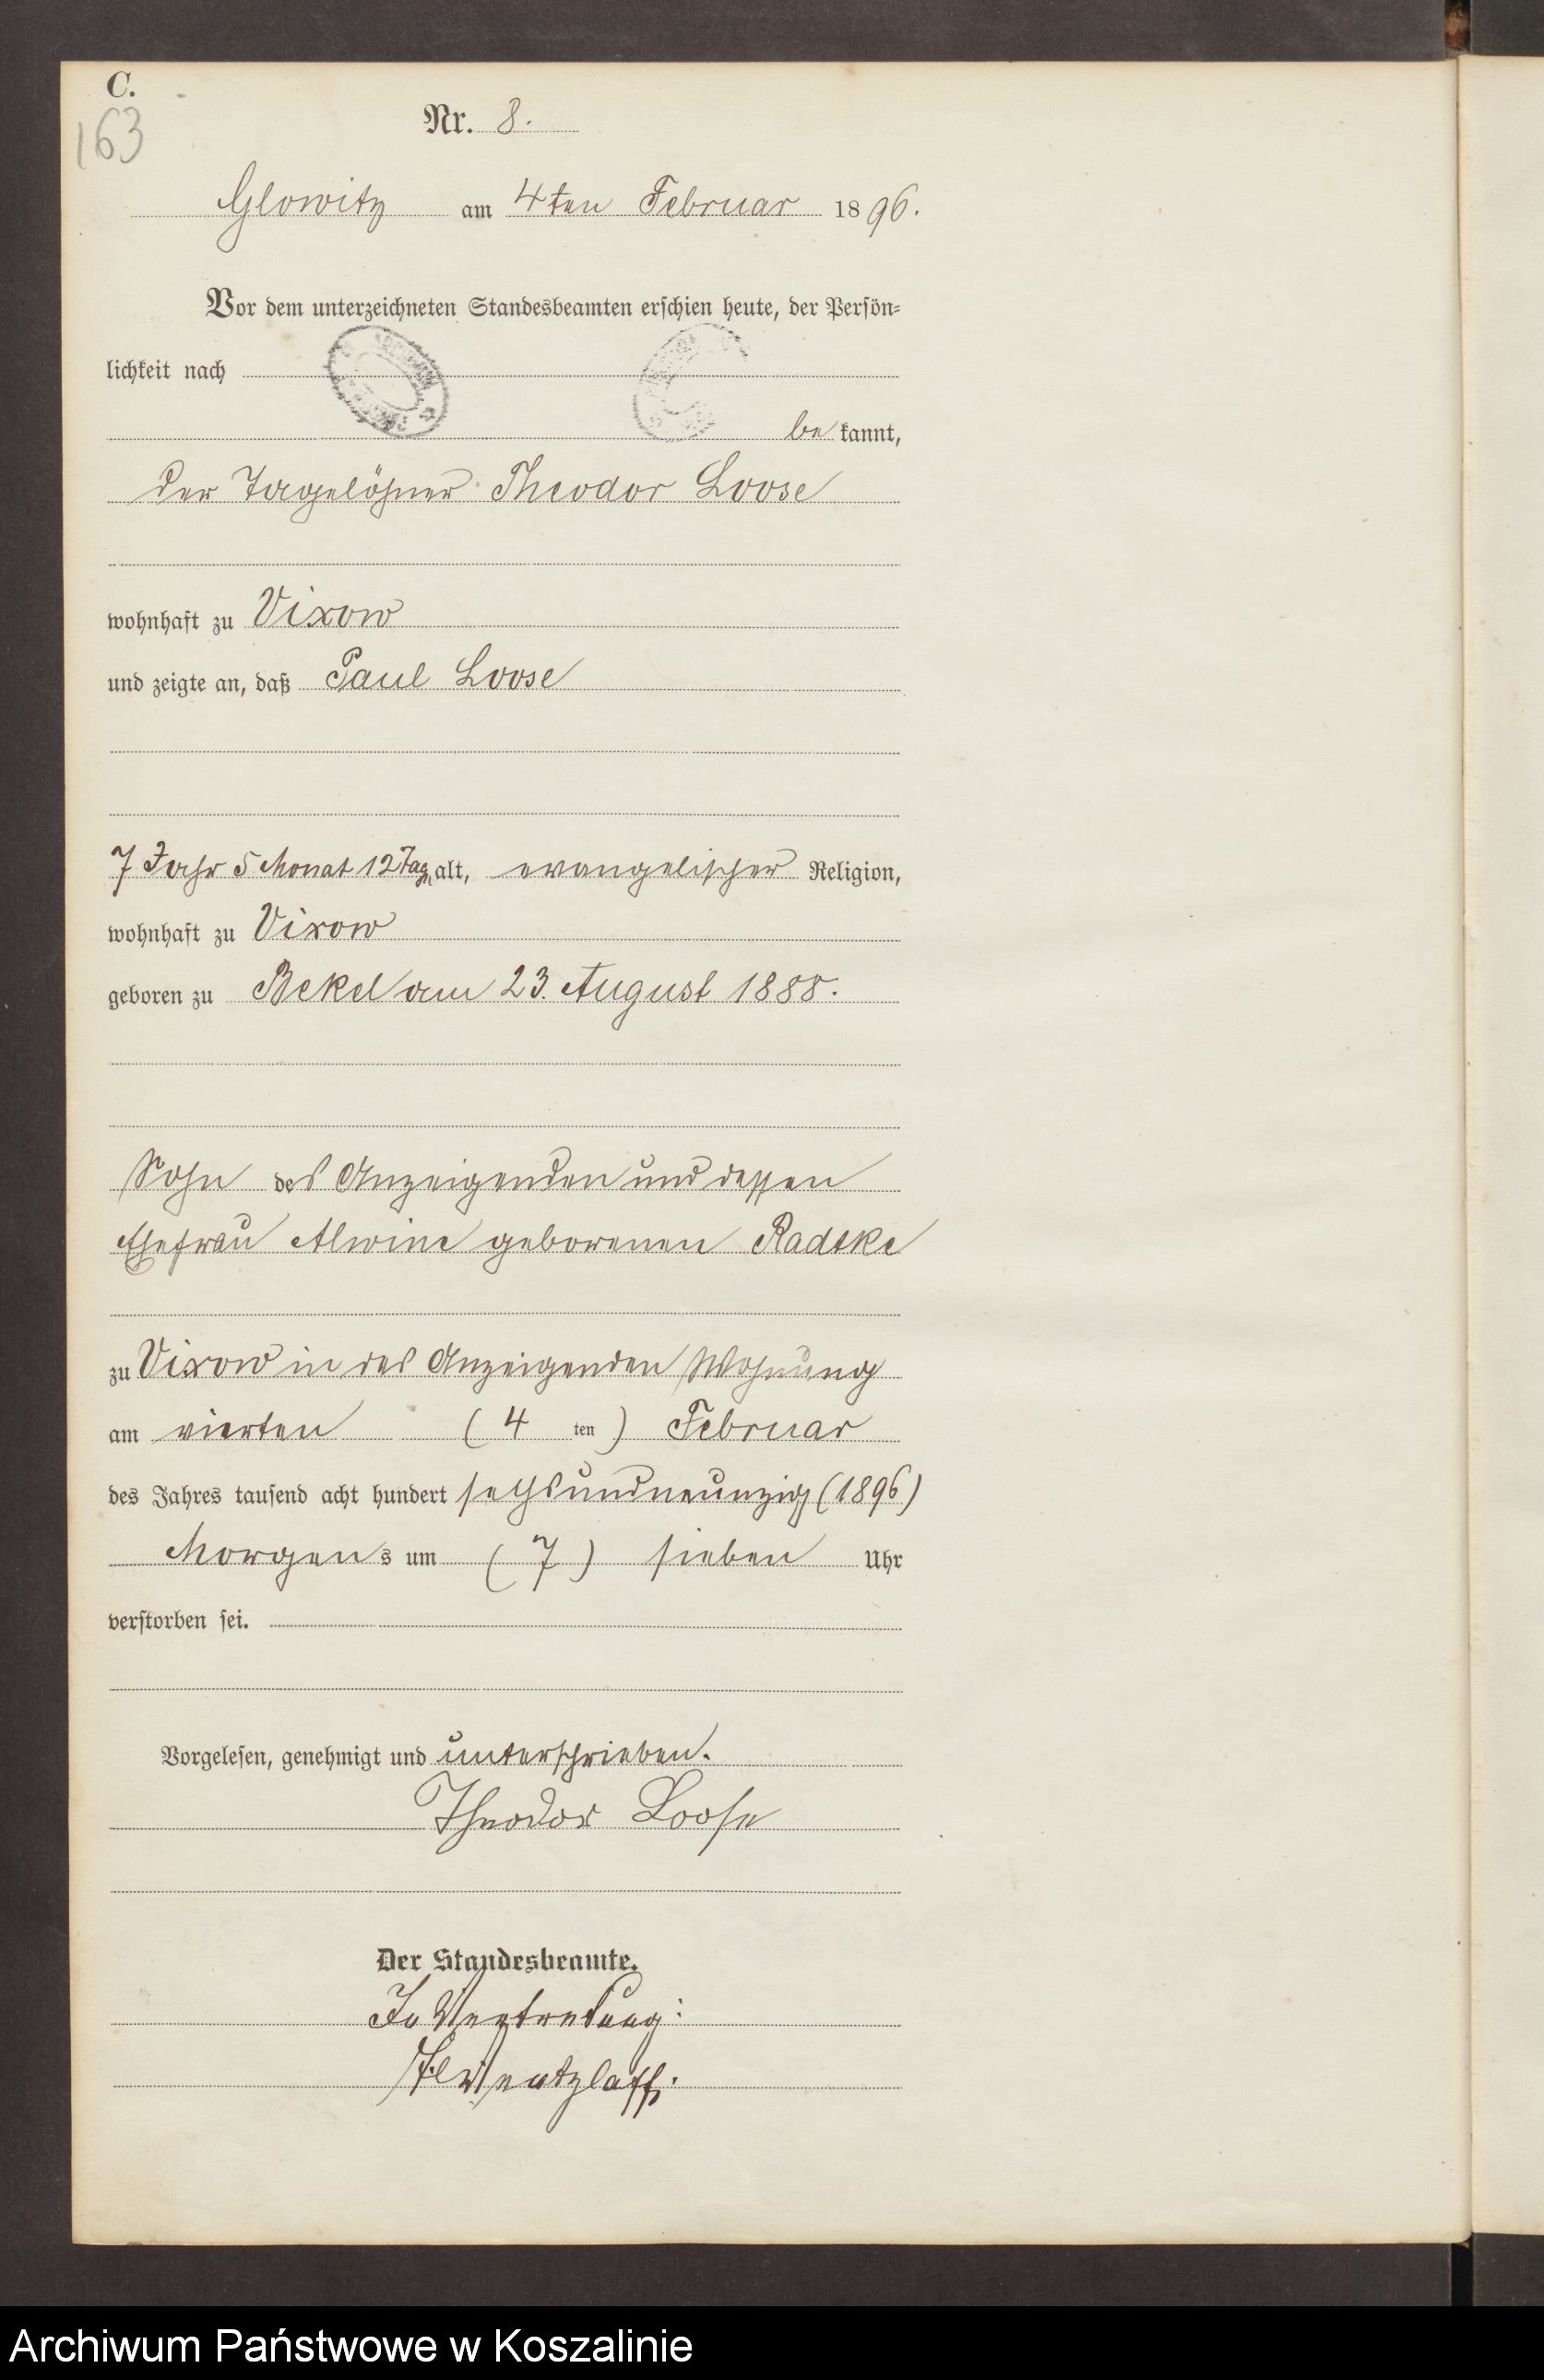 C.
163
Nr. 8.
Glowitz am 4ten Februar 1896.
Vor dem unterzeichneten Standesbeamten erschien heute, der Persön-
lichkeit nach
be kannt,
der Tagelöhner Theodor Loose
wohnhaft zu Vixow
und zeigte an, daß Paul Loose
7 Jahr 5 Monat 12 Tag alt, evangelischer Religion,
wohnhaft zu Vixow
geboren zu Bekel am 23. August 1888.
Sohn des Anzeigenden und dessen
Ehefrau Alwine geborenen Radtke
zu Vixow in des Anzeigenden Wohnung
am vierten (4 ten) Februar
des Jahres tausend acht hundert sechsundneunzig (1896)
Morgens um (7) sieben Uhr
verstorben sei.
Vorgelesen, genehmigt und unterschrieben.
Theodor Loose
Der Standesbeamte.
In Vertretung:
Wentzlaff.
Archiwum Państwowe w Koszalinie